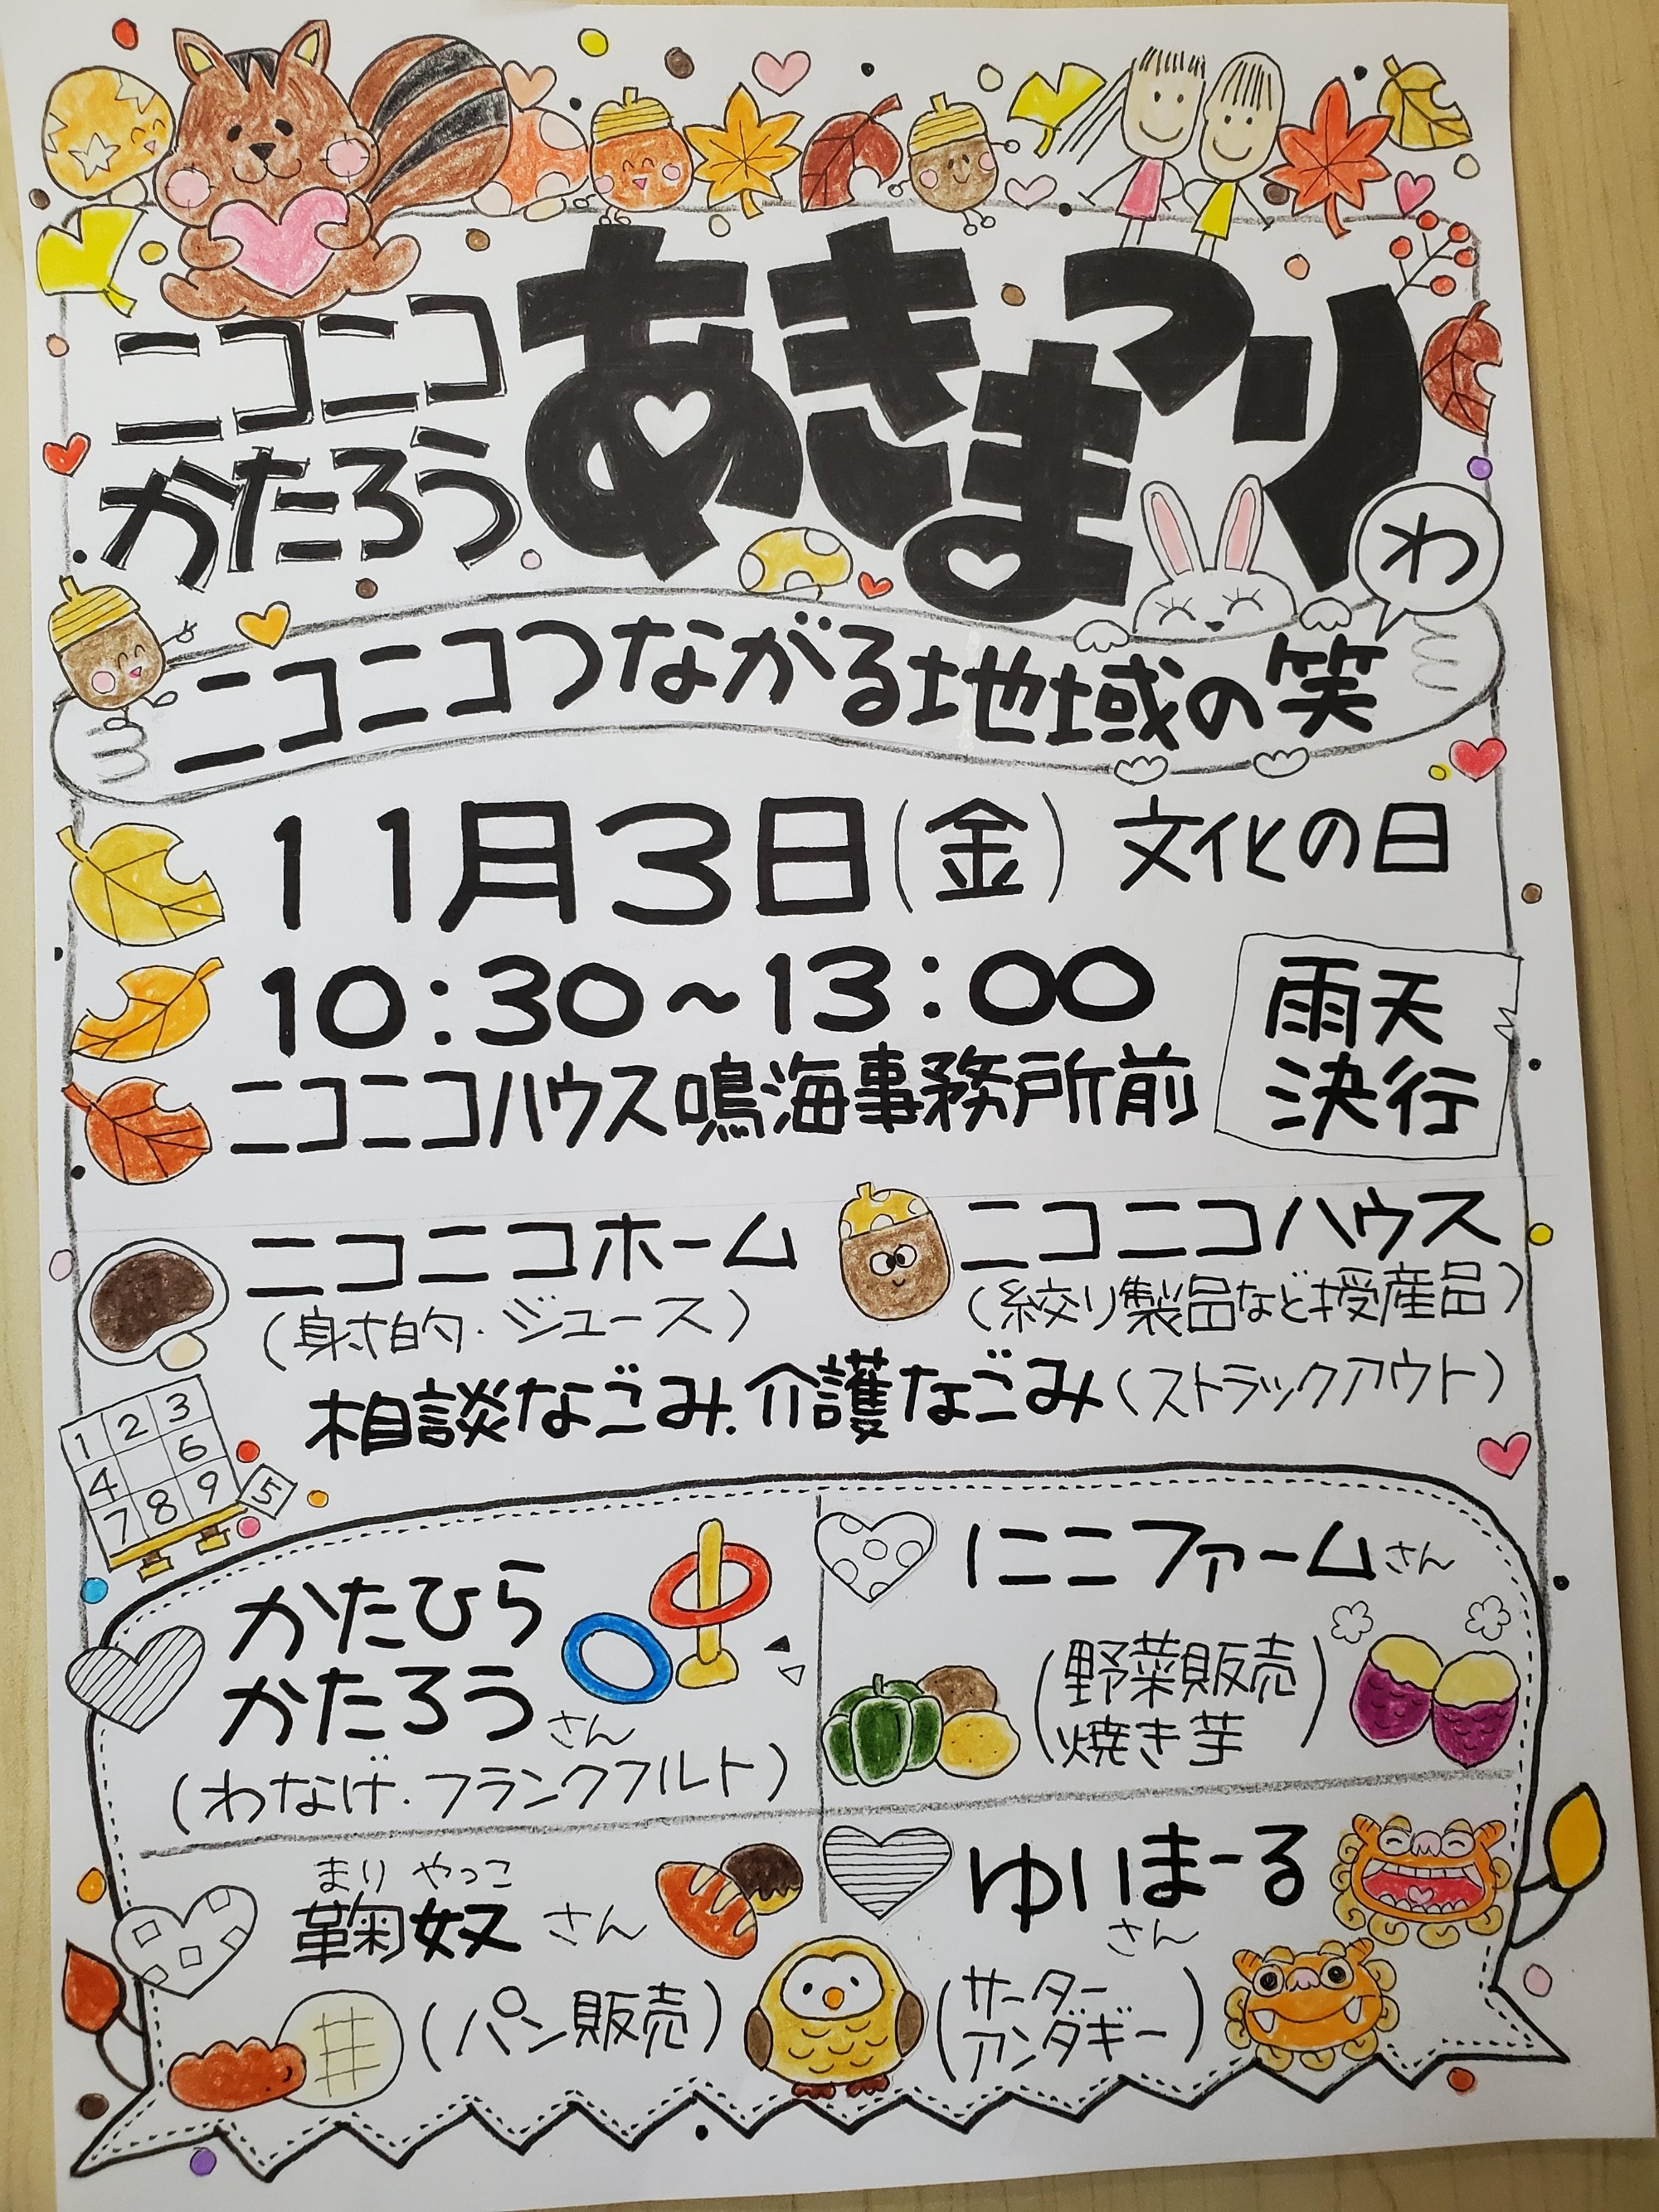 ニコニコ
かたろう
あきまつり
わ
ニコニコつながる地域の笑
11月3日(金) 文化の日
10:30~13:00
雨天
決行
ニコニコハウス鳴海事務所前
ニコニコホーム
(射的・ジュース)
ニコニコハウス
(絞り製品など授産品)
相談なごみ・介護なごみ(ストラックアウト)
1 2 3
4 6
7 8 9
5
かたひら
かたろうさん
(わなげ・フランクフルト)
にこニファームさん
(野菜販売
焼き芋)
まり やっこ
鞠奴 さん
(パン販売)
ゆいまーる
さん
(サーター
アンダギー)